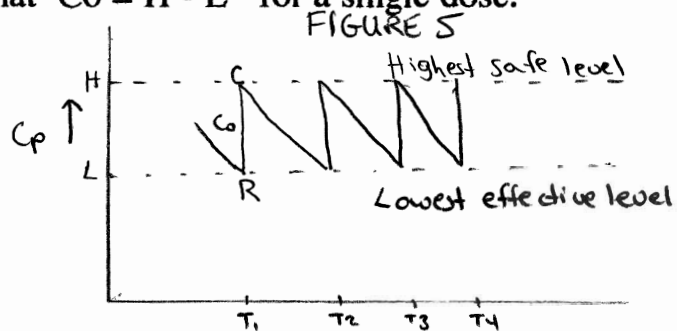 hat Co = H - L for a single dose.
FIGURE 5
C
Highest safe level
H
Co
Cp
L
R
Lowest effective level
T1 T2 T3 T4